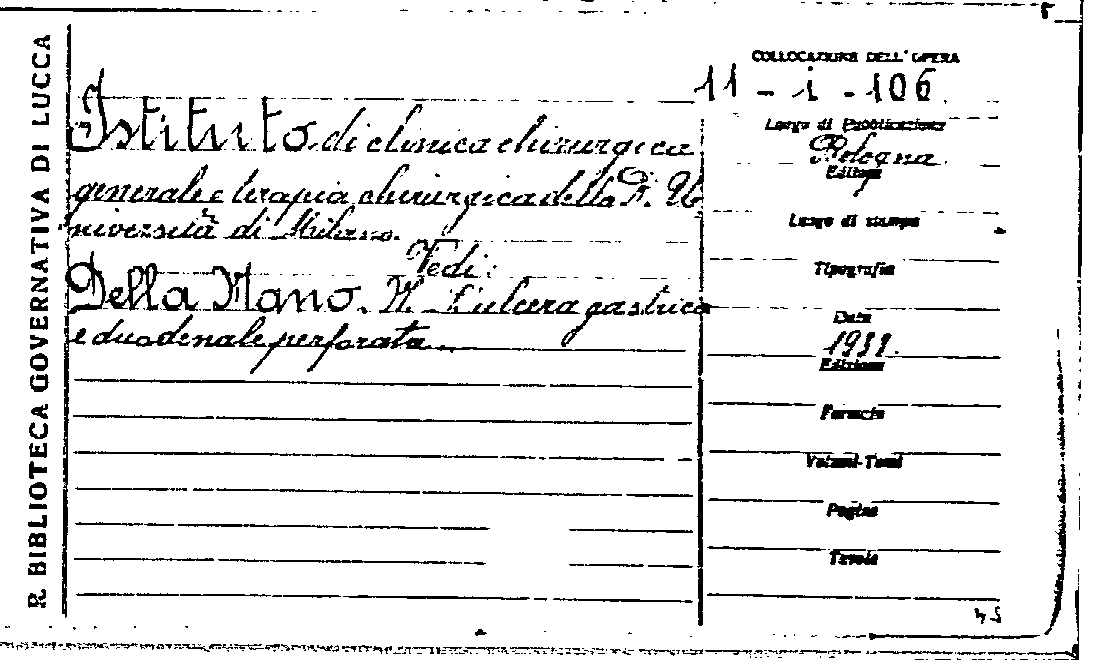 R. BIBLIOTECA GOVERNATIVA DI LUCCA
Istituto di clinica chirurgica
generale e terapia chirurgica della R. U-
niversità di Milano.
Vedi:
Della Mano. N. - L'ulcera gastrica
e duodenale perforata.
COLLOCAZIONE DELL'OPERA
11 - i - 106
Luogo di Pubblicazione
Bologna
Editore
Luogo di stampa
Tipografia
Data
Edizione
Formato
Volumi-Tomi
Pagine
Tavole